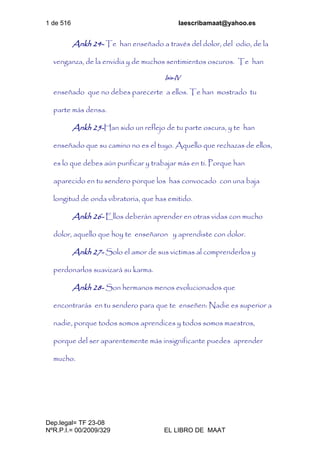 1 de 516 laescribamaat@yahoo.es
Ankh 24- Te han enseñado a través del dolor, del odio, de la
venganza, de la envidia y de muchos sentimientos oscuros. Te han
Isis-IV
enseñado que no debes parecerte a ellos. Te han mostrado tu
parte más densa.
Ankh 25-Han sido un reflejo de tu parte oscura, y te han
enseñado que su camino no es el tuyo. Aquello que rechazas de ellos,
es lo que debes aún purificar y trabajar más en ti. Porque han
aparecido en tu sendero porque los has convocado con una baja
longitud de onda vibratoria, que has emitido.
Ankh 26- Ellos deberán aprender en otras vidas con mucho
dolor, aquello que hoy te enseñaron y aprendiste con dolor.
Ankh 27- Solo el amor de sus victimas al comprenderlos y
perdonarlos suavizará su karma.
Ankh 28- Son hermanos menos evolucionados que
encontrarás en tu sendero para que te enseñen: Nadie es superior a
nadie, porque todos somos aprendices y todos somos maestros,
porque del ser aparentemente más insignificante puedes aprender
mucho.
Dep.legal= TF 23-08
NºR.P.I.= 00/2009/329 EL LIBRO DE MAAT